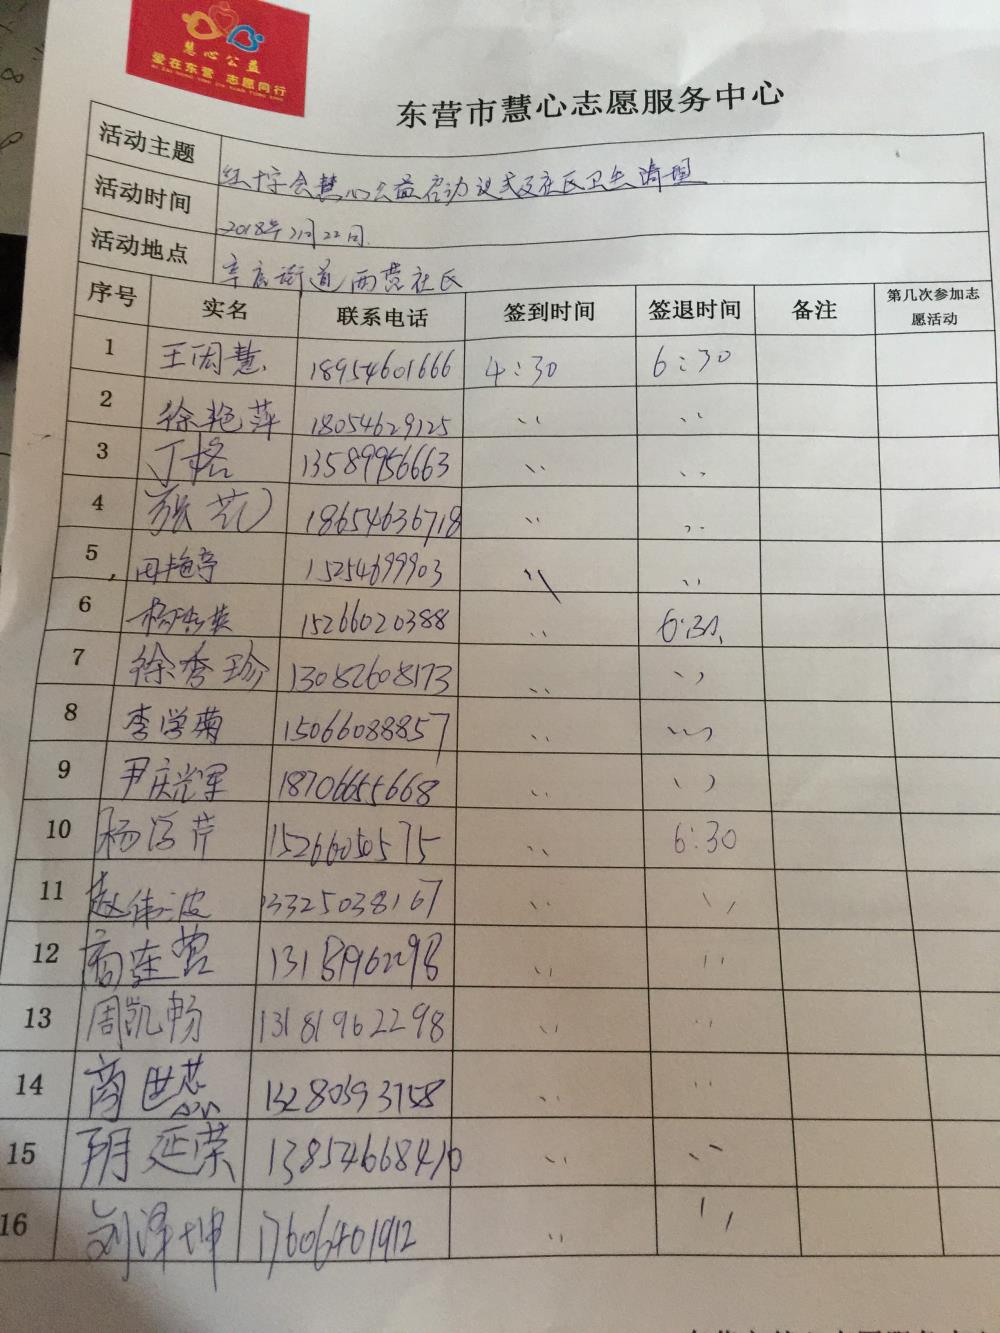 慧心公益
爱在东营 志愿同行
东营市慧心志愿服务中心
活动主题 红十字会慧心公益启动仪式及社区卫生清理
活动时间 2018年 月22日
活动地点 辛店街道西营社区
序号 实名 联系电话 签到时间 签退时间 备注 第几次参加志愿活动
1 王因慧 18954601666 4:30 6:30
2 徐艳萍 18054629125 〃 〃
3 丁格 13589956663 〃 〃
4 张艺 18654636718 〃 〃
5 田艳亭 15254699903 〃 〃
6 杨 英 15266020388 〃 6:30
7 徐秀珍 13082608173 〃 〃
8 李学菊 15066088857 〃 〃
9 尹庆军 18706655668 〃 〃
10 杨学芹 15266050575 〃 6:30
11 赵伟波 13325038167 〃 〃
12 商连营 13181962298 〃 〃
13 周凯畅 13181962298 〃 〃
14 商世蕊 13280393758 〃 〃
15 延荣 13854668410 〃 〃
16 刘泽坤 17606401912 〃 〃